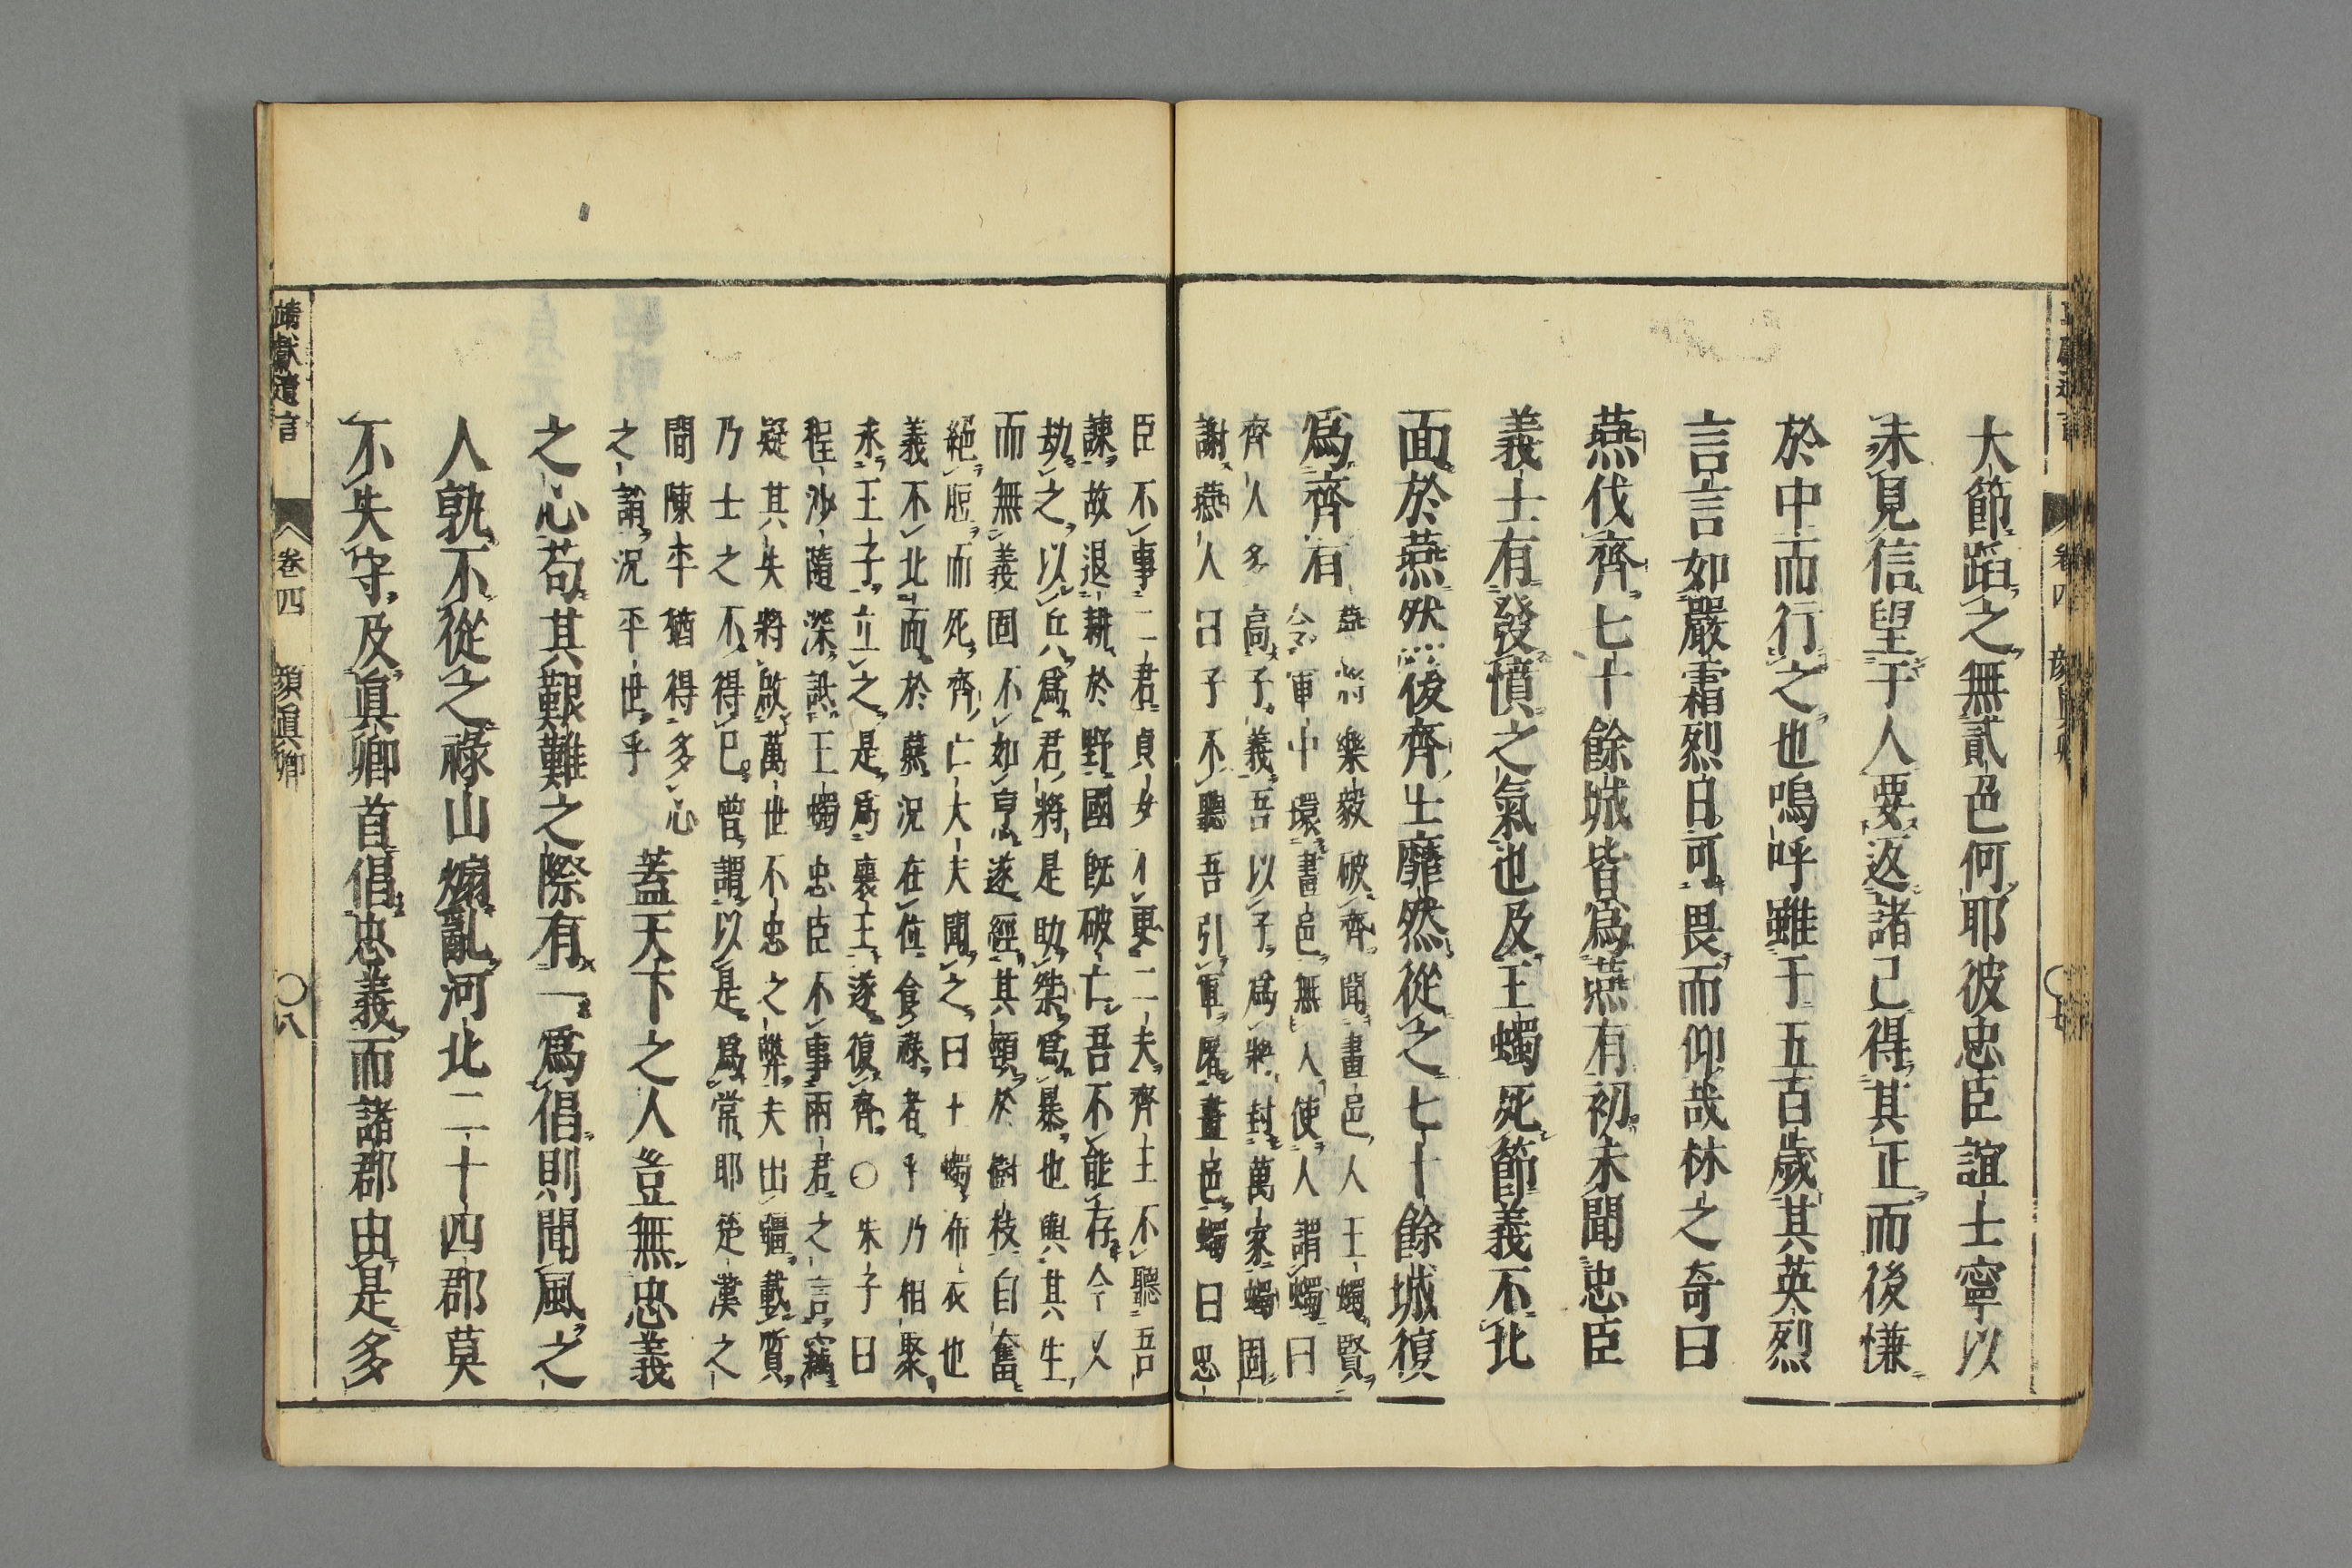 大節蹈之無貳色何耶彼忠臣誼士寧以
未見信望于人要返諸己得其正而後慊
於中而行之也嗚呼雖千五百歲其英烈
言言如嚴霜烈日可畏而仰哉林之奇曰
燕伐齊七十餘城皆爲燕有初未聞忠臣
義士有發憤之氣也及王蠋死節義不北
面於燕然後齊士靡然從之七十餘城復
爲齊有
燕將樂毅破齊聞畫邑人王蠋賢
令軍中環畫邑無人使人謂蠋曰
齊人多高子義吾以子爲將封萬家蠋固
謝燕人曰子不聽吾引軍屠畫邑蠋曰忠
臣不事二君貞女不更二夫齊王不聽吾
諫故退耕於野國既破亡吾不能存今又
劫之以兵爲君將是助桀爲暴也與其生
而無義固不如烹遂經其頸於樹枝自奮
絕脰而死齊亡大夫聞之曰王蠋布衣也
義不北面於燕況在位食祿者乎乃相聚
求王子立之是爲襄王遂復齊○朱子曰
程沙隨深詆王蠋忠臣不事兩君之言竊
疑其失將啟萬世不忠之弊夫出疆載質
乃士之不得已曾謂以是爲常耶楚漢之
間陳平猶得多心
之誚況平世乎
蓋天下之人豈無忠義
之心苟其艱難之際有一爲倡則聞風之
人孰不從之祿山煽亂河北二十四郡莫
不失守及眞卿首倡忠義而諸郡由是多
靖獻遺言 卷四 顏眞卿 ○八